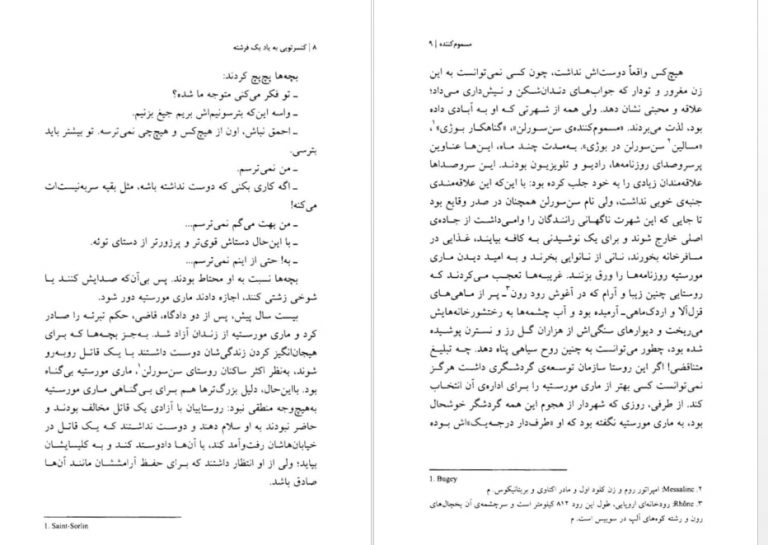 ۸ | کنسرتویی به یاد یک فرشته
بچه‌ها پچ‌پچ کردند:
ـ تو فکر می‌کنی متوجه ما شده؟
ـ واسه این‌که بترسونیم‌اش بریم جیغ بزنیم.
ـ احمق نباش، اون از هیچ‌کس و هیچ‌چی نمی‌ترسه. تو بیشتر باید
بترسی.
ـ من نمی‌ترسم.
ـ اگه کاری بکنی که دوست نداشته باشه، مثل بقیه سربه‌نیست‌ات
می‌کنه!
ـ من بهت می‌گم نمی‌ترسم...
ـ با این‌حال دستاش قوی‌تر و پرزورتر از دستای توئه.
ـ به! حتی از اینم نمی‌ترسم...
بچه‌ها نسبت به او محتاط بودند. پس بی‌آن‌که صدایش کنند یا
شوخی زشتی کنند، اجازه دادند ماری مورستیه دور شود.
بیست سال پیش، پس از دو دادگاه، قاضی، حکم تبرئه را صادر
کرد و ماری مورستیه از زندان آزاد شد. به‌جز بچه‌ها که برای
هیجان‌انگیز کردن زندگی‌شان دوست داشتند با یک قاتل روبه‌رو
شوند، به‌نظر اکثر ساکنان روستای سن‌سورلن۱، ماری مورستیه بی‌گناه
بود. بااین‌حال، دلیل بزرگ‌ترها هم برای بی‌گناهی ماری مورستیه
به‌هیچ‌وجه منطقی نبود: روستاییان با آزادی یک قاتل مخالف بودند و
حاضر نبودند به او سلام دهند و دوست نداشتند که یک قاتل در
خیابان‌هاشان رفت‌وآمد کند، با آن‌ها دادوستد کند و به کلیسایشان
بیاید؛ ولی از او انتظار داشتند که برای حفظ آرامششان مانند آن‌ها
صادق باشد.
1. Saint-Sorlin
مسموم‌کننده | ۹
هیچ‌کس واقعاً دوست‌اش نداشت، چون کسی نمی‌توانست به این
زن مغرور و تودار که جواب‌های دندان‌شکن و نیش‌داری می‌داد؛
علاقه و محبتی نشان دهد. ولی همه از شهرتی که او به آبادی داده
بود، لذت می‌بردند. «مسموم‌کننده‌ی سن‌سورلن»، «گناهکار بوژی»۱،
«مسالین۲ سن‌سورلن در بوژی». به‌مدت چند ماه، این‌ها عناوین
پرسروصدای روزنامه‌ها، رادیو و تلویزیون بودند. این سروصداها
علاقه‌مندان زیادی را به خود جلب کرده بود: با این‌که این علاقه‌مندی
جنبه‌ی خوبی نداشت، ولی نام سن‌سورلن همچنان در صدر وقایع بود
تا جایی که این شهرت ناگهانی رانندگان را وامی‌داشت از جاده‌ی
اصلی خارج شوند و برای یک نوشیدنی به کافه بیایند، غذایی در
مسافرخانه بخورند، نانی از نانوایی بخرند و به امید دیدن ماری
مورستیه روزنامه‌ها را ورق بزنند. غریبه‌ها تعجب می‌کردند که
روستایی چنین زیبا و آرام که در آغوش رود رون۳ ـ پر از ماهی‌های
قزل‌آلا و اردک‌ماهی‌ـ آرمیده بود و آب چشمه‌ها به رختشورخانه‌هایش
می‌ریخت و دیوارهای سنگی‌اش از هزاران گل رز و نسترن پوشیده
شده بود، چطور می‌توانست به چنین روح سیاهی پناه دهد. چه تبلیغ
متناقضی! اگر این روستا سازمان توسعه‌ی گردشگری داشت هرگز
نمی‌توانست کسی بهتر از ماری مورستیه را برای اداره‌ی آن انتخاب
کند. از طرفی، روزی که شهردار از هجوم این همه گردشگر خوشحال
بود، به ماری مورستیه نگفته بود که او «طرف‌دار درجه‌یک»‌اش بوده
1. Bugey
۲. Messaline: امپراتور روم و زن کلود اول و مادر اکتاوی و بریتانیکوس. م
۳. Rhône: رودخانه‌ای اروپایی، طول این رود ۸۱۲ کیلومتر است و سرچشمه‌ی آن یخچال‌های
رون و رشته کوه‌های آلپ در سوییس است. م